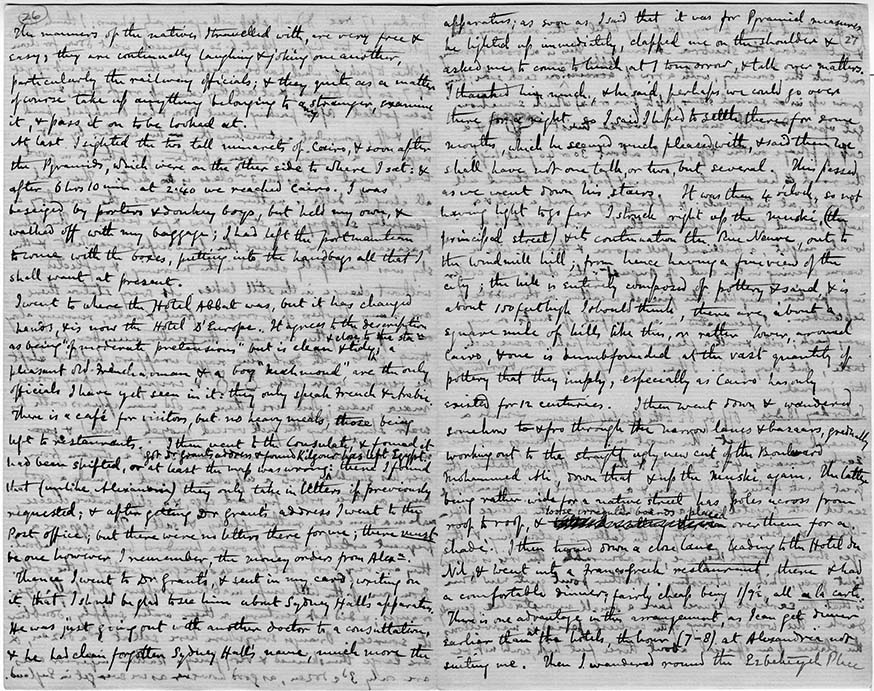 26
The manners of the natives I travelled with, are very free &
easy, they are continually laughing & joking one another,
particularly the railway officials; & they quite as a matter
of course take up anything belonging to a stranger, examine
it, & pass it on to be looked at.
At last I sighted the two tall minarets of Cairo, & soon after
the Pyramids, which were on the other side to where I sat: &
after 6 hrs 10 min. at 2:40 we reached Cairo. I was
beseiged by porters & donkey boys, but held my own, &
walked off with my baggage; I had left the portmanteau
to come with the boxes, putting into the handbags all that I
shall want at present.
I went to where the Hotel Abbat was, but it has changed
hands, & is now the Hotel D'Europe. It agrees to the description
as being "of moderate pretensions" but is clean & tidy, & close to the stn: a
pleasant old Frenchwoman, & a boy "Mechmoud" are the only
officials I have yet seen in it: they only speak French & Arabic.
There is a café for visitors, but no heavy meals, those being
left to restaurants. I then went to the Consulate, & found it
had been shifted, or at least the map was wrong; there I found
got Dr Grant's address & found Kilgour has left Egypt
that (unlike Alexandria) they only take in letters if previously
requested; & after getting Dr Grant's address I went to the
Post office; but there were no letters there for me; there must
be one however, I remember, the money orders from Alexa.
Thence I went to Dr Grant's, & sent in my card, writing on
it that I should be glad to see him about Sydney Hall's apparatus.
He was just going out with another doctor to a consultation,
& he had clean forgotten Sydney Hall's name, much more the
27
apparatus; as soon as I said that it was for Pyramid measures
he lighted up immediately, clapped me on the shoulder &
asked me to come to lunch at 1 tomorrow, & talk over matters.
I thanked him much, & he said, perhaps we could go over
there for a night, so I said I hoped to settle there for some
months, which he seemed much pleased with, & said then we
shall have not one talk, or two, but several. This passed
as we went down his stairs. It was then 4 o'clock, so not
having light to go far I struck right up the Muski, (the
principal street) & its continuation the Rue Neuve, out to
the windmill hill; from hence having a fine view of the
city; the hill is entirely composed of pottery & sand & is
about 100 feet high I should think, there are about a
square mile of hills like this, or rather lower, around
Cairo, & one is dumbfounded at the vast quantity of
pottery that they imply, especially as Cairo has only
existed for 12 centuries. I then went down & wandered
somehow to & fro through the narrow lanes & bazaars, gradually
working out to the straight ugly new cut of the Boulevard
Mohammed Ali, down that & up the Muski again. The latter
being rather wide for a native street has poles across from
roof to roof, & loose irregular boards placed over them for a
shade. I then turned down a close lane leading to the Hotel du
Nil, & went into a francogreek restaurant there & had
a comfortable dinner, fairly cheap being 1/9½, all a la carte.
There is one advantage in this arrangement as I can get dinner
earlier than at the hotels, the hour (7-8) at Alexandria not
suiting me. Then I wandered round the Ezbekiyeh Place